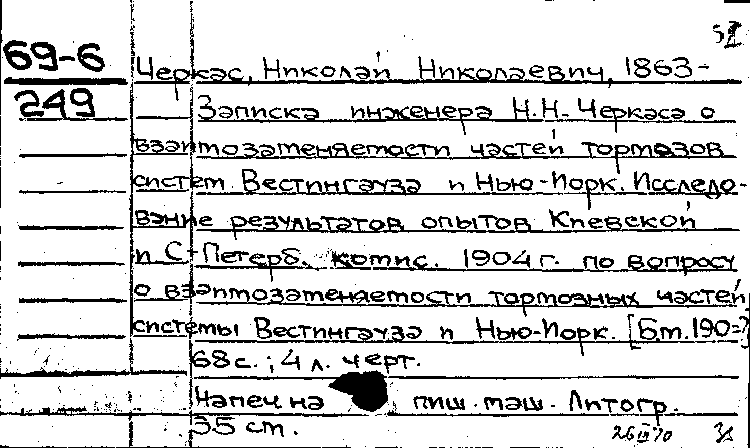 69-6
249
Черкас, Николай Николаевич, 1863-
Записка инженера Н.Н. Черкаса о
взаимозаменяемости частей тормозов
систем Вестингауза и Нью-Йорк. Исследо-
вание результатов опытов Киевской
и С-Петерб. комис. 1904 г. по вопросу
о взаимозаменяемости тормозных частей
системы Вестингауза и Нью-Йорк. [Б.м. 190-?]
68 с.; 4 л. черт.
Напеч. на пиш. маш. Литогр.
35 см.